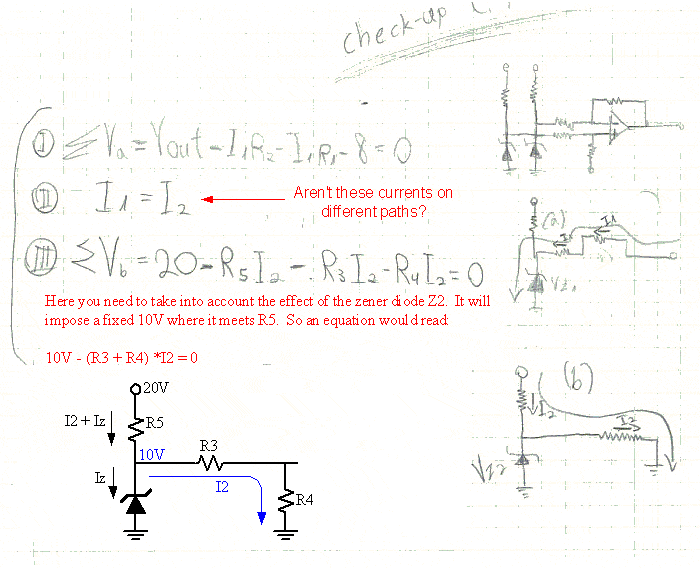 check-up
I ΣVa = Vout - I1R2 - I1R1 - 8 = 0
II I1 = I2
Aren't these currents on
different paths?
III ΣVb = 20 - R5I2 - R3I2 - R4I2 = 0
Here you need to take into account the effect of the zener diode Z2. It will
impose a fixed 10V where it meets R5. So an equation would read:
10V - (R3 + R4) *I2 = 0
20V
I2 + Iz
R5
10V
R3
Iz
I2
R4
(a)
I1
I1
Vz1
(b)
I2
I2
Vz2